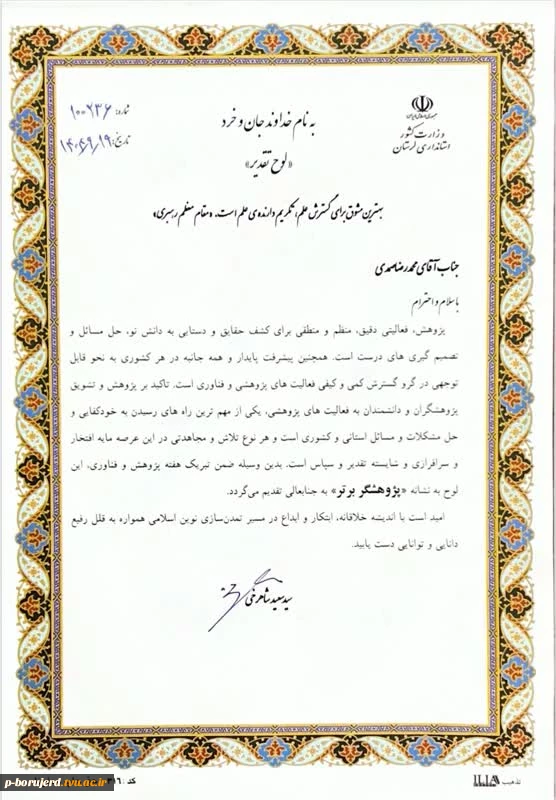 جمهوری اسلامی ایران
وزارت کشور
استانداری لرستان
به نام خداوند جان و خرد
«لوح تقدیر»
شماره: ۱۰۰۶۳۶
تاریخ:
بهترین مشوق برای گسترش علم، تکریم دارنده‌ی علم است. «مقام معظم رهبری»
جناب آقای محمدرضا صمدی
با سلام و احترام
پژوهش، فعالیتی دقیق، منظم و منطقی برای کشف حقایق و دستیابی به دانش نو، حل مسائل و
تصمیم گیری های درست است. همچنین پیشرفت پایدار و همه جانبه در هر کشوری به نحو قابل
توجهی در گرو گسترش کمی و کیفی فعالیت های پژوهشی و فناوری است. تاکید بر پژوهش و تشویق
پژوهشگران و دانشمندان به فعالیت های پژوهشی، یکی از مهم ترین راه های رسیدن به خودکفایی و
حل مشکلات و مسائل استانی و کشوری است و هر نوع تلاش و مجاهدتی در این عرصه مایه افتخار
و سرافرازی و شایسته تقدیر و سپاس است. بدین وسیله ضمن تبریک هفته پژوهش و فناوری، این
لوح به نشانه «پژوهشگر برتر» به جنابعالی تقدیم می‌گردد.
امید است با اندیشه خلاقانه، ابتکار و ابداع در مسیر تمدن‌سازی نوین اسلامی همواره به قلل رفیع
دانایی و توانایی دست یابید.
سید سعید شاهرخی
p-borujerd.tvu.ac.ir
تذهیب ILIA